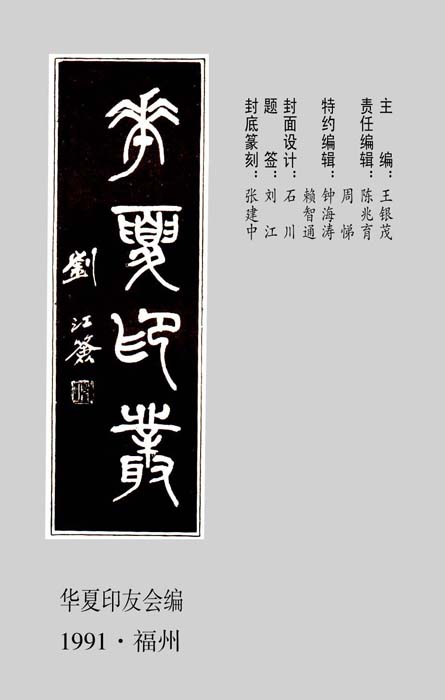 主　编：王银茂
责任编辑：陈兆育
周　悌
特约编辑：钟海涛
赖智通
封面设计：石　川
题　签：刘　江
封底篆刻：张建中
華夏印叢
劉江簽
华夏印友会编
1991·福州